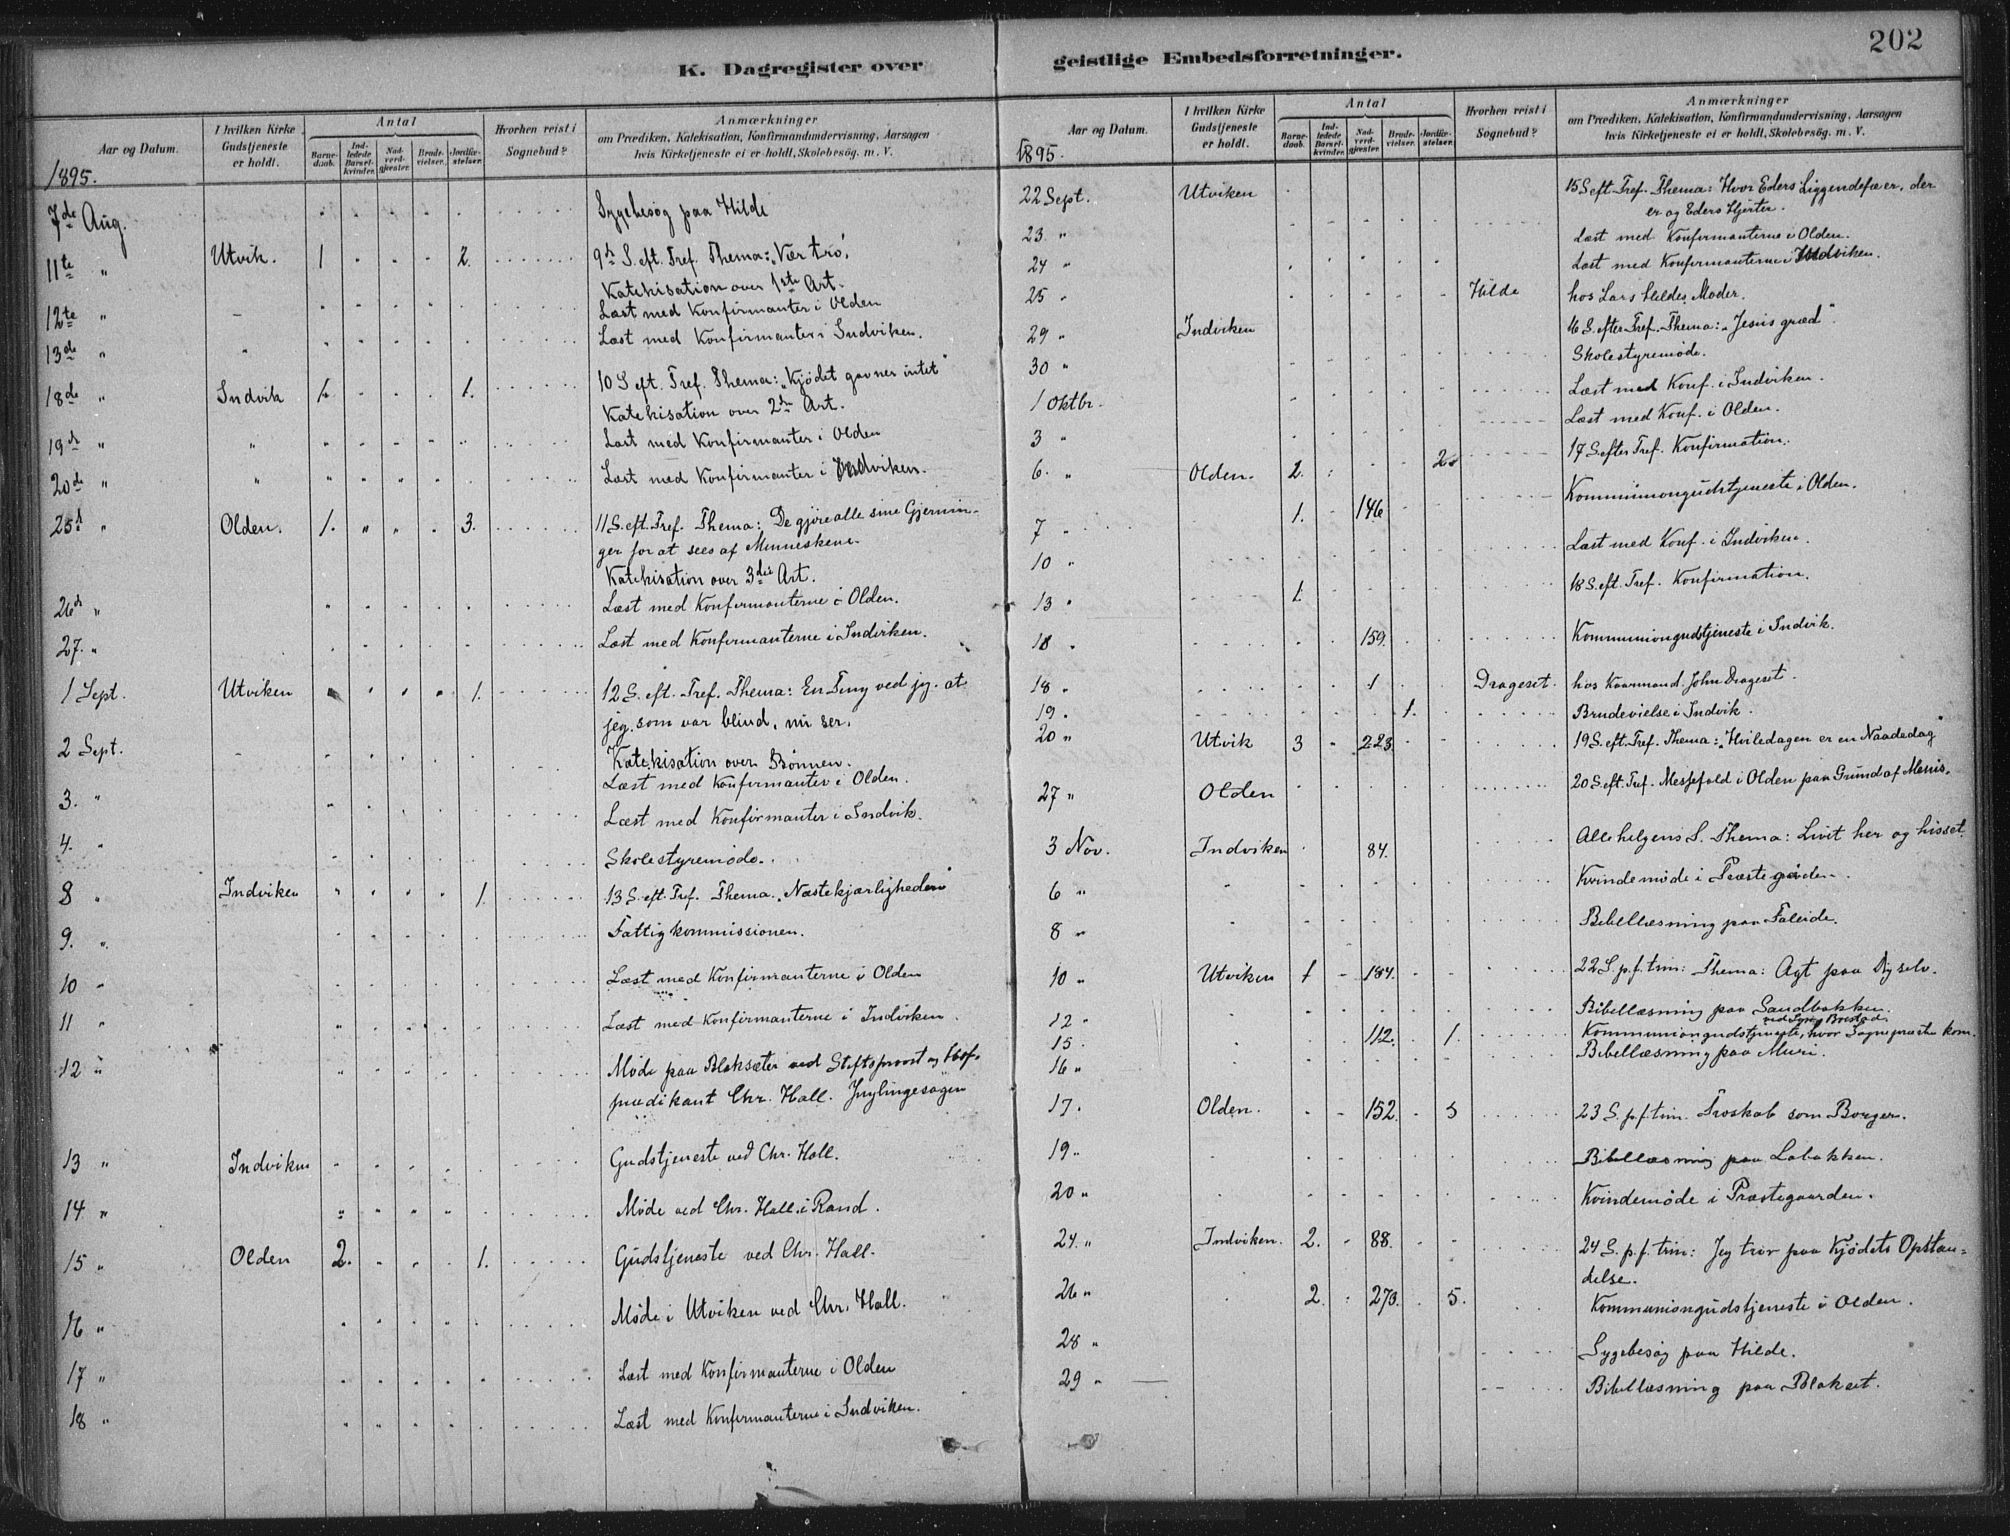 202
K. Dagregister over geistlige Embedsforretninger.
Aar og Datum. I hvilken Kirke Gudstjeneste er holdt. Antal Barnedaab. Indledede Barselkvinder. Nadverdgjæster. Brudevielser. Jordfæstelser. Hvorhen reist i Sognebud? Anmærkninger om Prædiken, Katekisation, Konfirmandundervisning, Aarsagen hvis Kirketjeneste ei er holdt, Skolebesøg. m. V.
1895.
7de Aug. Sygebesøg paa Hilde
11te " Utvik. 1 2. 9de S. eft. Tref. Thema: "Vær tro."
Katekisation over 1ste Art.
12te " Læst med Konfirmanter i Olden
13de " Læst med Konfirmanter i Indviken.
18de " Indvik 1. 1. 10 S eft. Tref. Thema: "Kjødet gavner intet"
Katekisation over 2den Art.
19de " " Læst med Konfirmanter i Olden
20de " " Læst med Konfirmanter i Indviken.
25de " Olden. 1. " " 3. 11 S. eft. Tref. Thema: De gjøre alle sine Gjernin-
ger for at sees af Menneskene.
Katekisation over 3die Art.
26de " Læst med Konfirmanterne i Olden.
27. " Læst med Konfirmanterne i Indviken.
1 Sept. Utviken 1. 12 S. eft. Tref. Thema: En Ting ved jeg. at
jeg, som var blind, nu ser.
Katekisation over Bønnen.
2 Sept. Læst med Konfirmanter i Olden.
3. " Læst med Konfirmanter i Indvik.
4. " Skolestyremøde.
8 " Indviken 1. 13 S. eft. Tref. Thema. "Næstekjærligheden"
9. " Fattigkommissionen.
10 " Læst med Konfirmanterne i Olden
11 " Læst med Konfirmanterne i Indviken.
12 " Møde paa Blaksæter ved Stiftsprovst og Hof-
prædikant Chr. Hall. Ynglingesagen
13 " Indviken Gudstjeneste ved Chr. Hall.
14 " Møde ved Chr. Hall i Rand.
15 " Olden 2. 1. Gudstjeneste ved Chr. Hall.
16 " Møde i Utviken ved Chr. Hall.
17 " Læst med Konfirmanterne i Olden
18 " Læst med Konfirmanterne i Indviken.
Aar og Datum. I hvilken Kirke Gudstjeneste er holdt. Antal Barnedaab. Indledede Barselkvinder. Nadverdgjæster. Brudevielser. Jordfæstelser. Hvorhen reist i Sognebud? Anmærkninger om Prædiken, Katekisation, Konfirmandundervisning, Aarsagen hvis Kirketjeneste ei er holdt, Skolebesøg. m. V.
1895.
22 Sept. Utviken 15 S eft. Tref. Thema: Hvor Eders Liggendefæ er, der
er og Eders Hjerter.
23. " Læst med Konfirmanterne i Olden.
24 " Læst med Konfirmanterne i Indviken.
25 " Hilde hos Lars Hildes Moder.
29 " Indviken 16 S. efter Tref. Thema: "Jesus græd".
30 " Skolestyremøde.
1 Oktbr. Læst med Konf. i Indviken.
3 " Læst med Konf. i Olden.
6. " Olden. 2. 2. 17 S efter Tref. Konfirmation.
7 " 1. 146 Kommuniongudstjeneste i Olden.
10 " Læst med Konf. i Indviken.
13 " 1. 18 S. eft. Tref. Konfirmation.
18 " 159. Kommuniongudstjeneste i Indvik.
18 " 1 Drageset. hos Kaarmand John Drageset.
19. 1. Brudevielse i Indvik.
20 " Utvik 3 " 223. 19 S. eft. Tref. Thema: "Hviledagen er en Naadedag"
27 " Olden 20 S. eft. Tref. Messefald i Olden paa Grund af
3 Nov. Indviken 84. Allehelgens S. Thema: Livit her og hisset.
6 " Kvindemøde i Præstegården.
8 " Bibellæsning paa Faleide.
10 " Utviken 1 - 184. 22 S. p. f. trin: Thema: Agt paa Dig selv.
12 " Bibellæsning paa Sandbakken.
15. 112. 1. Kommuniongudstjeneste, hvor Sognepræsten kom.
16 " Bibellæsning paa Muri.
17. Olden. 152. 5 23 S. p. f trin. Troskab som Borger.
19 " Bibellæsning paa Løbakken.
20 " Kvindemøde i Præstegaarden.
24. " Indviken. 2. 88. 24 S. p. f. trin: Jeg tror paa Kjødets Opstan-
delse.
26 " 2. 273. 5. Kommuniongudstjeneste i Olden.
28 " Sygebesøg paa Hilde.
29 " Bibellæsning paa